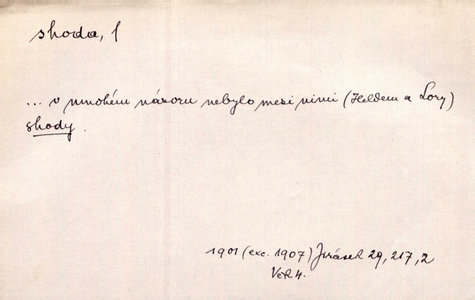 shoda, f
... v mnohém názoru nebylo mezi nimi (Heldem a Lory)
shody.
1901 (exc. 1907) Jirásek 29, 217, 2